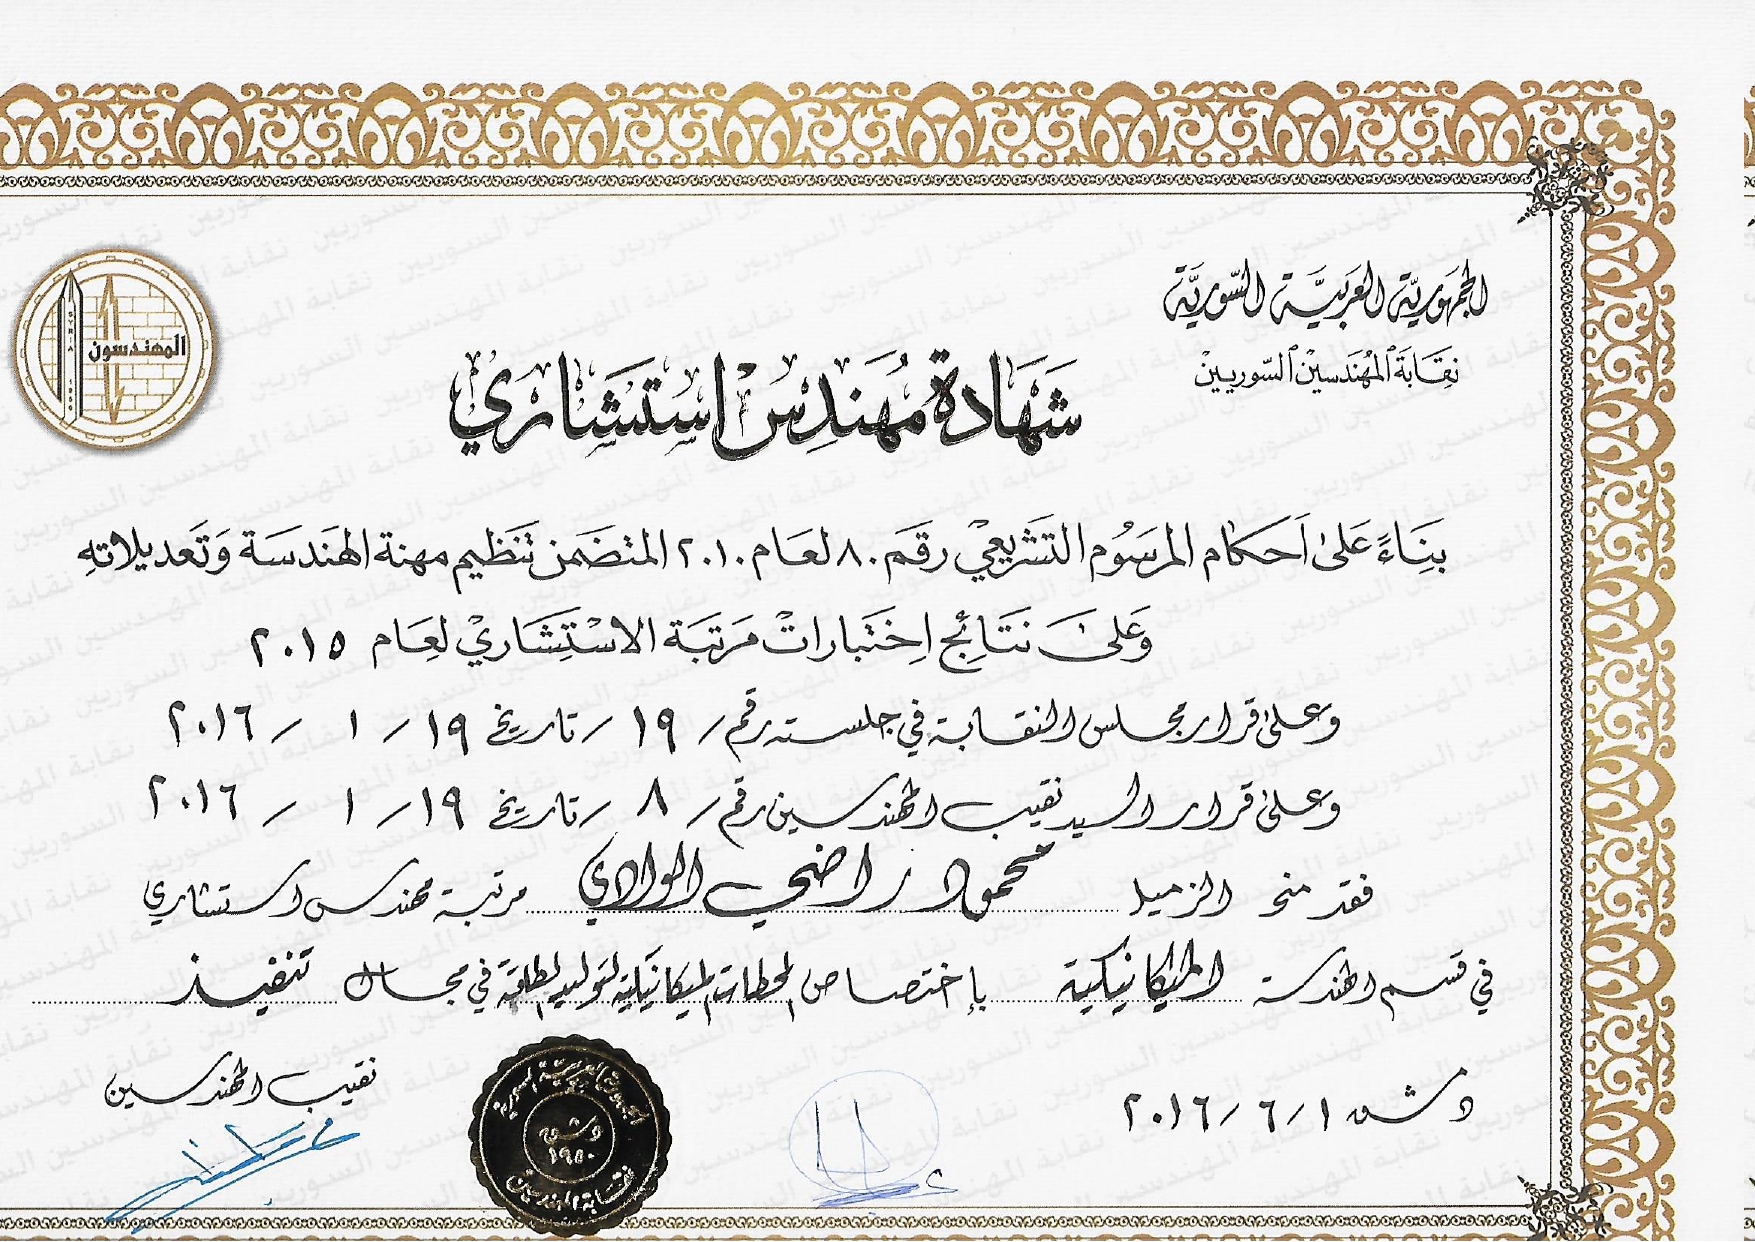 الجمهورية العربية السورية
نقابة المهندسين السوريين
المهندسون
SYRIA 1950
شهادة مهندس استشاري
بناءً على أحكام المرسوم التشريعي رقم ٨٠ لعام ٢٠١٠ المتضمن تنظيم مهنة الهندسة وتعديلاته
وعلى نتائج اختبارات مرتبة الاستشاري لعام ٢٠١٥
وعلى قرار مجلس النقابة في جلسته رقم / ١٩ / تاريخ ١٩ / ١ / ٢٠١٦
وعلى قرار السيد نقيب المهندسين رقم / ٨ / تاريخ ١٩ / ١ / ٢٠١٦
فقد منح الزميل محمود راضي الوادي مرتبة مهندس استشاري
في قسم الهندسة الميكانيكية بإختصاص المحطات الميكانيكية لتوليد الطاقة في مجال تنفيذ
دمشق ١ / ٦ / ٢٠١٦
نقيب المهندسين
الجمهورية العربية السورية
دمشق
١٩٥٠
نقابة المهندسين